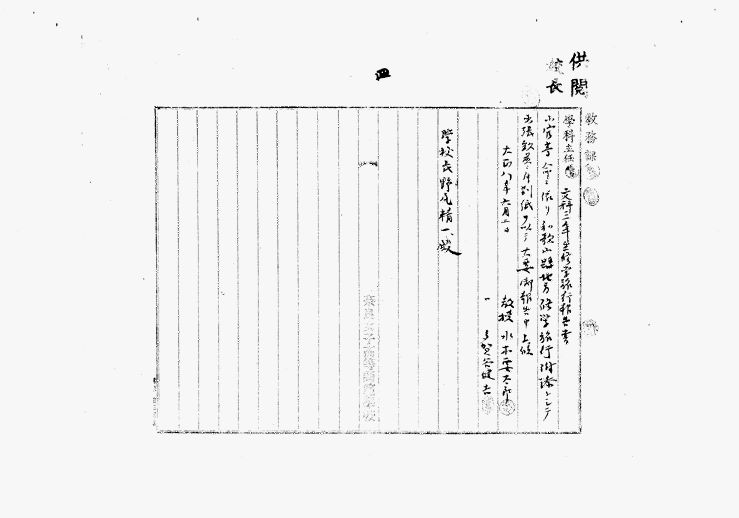 供閲
校長
四
教務課
學科主任
文科三年生修学旅行報告書
小官等命ニ依リ和歌山縣地方修学旅行附添トシテ
出張致候ニ付別紙ヲ以テ大要御報告申上候
大正八年六月二日
教授 水木要太郎
学校長野尻精一殿
奈良女子高等師範学校